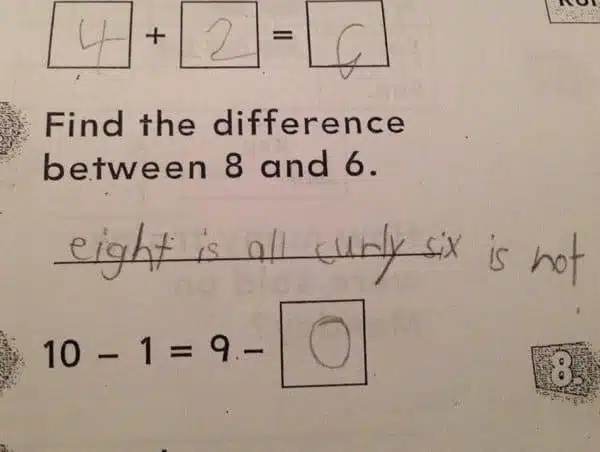 4 + 2 = 6
Find the difference
between 8 and 6.
eight is all curly six is not
10 – 1 = 9 – 0
8.